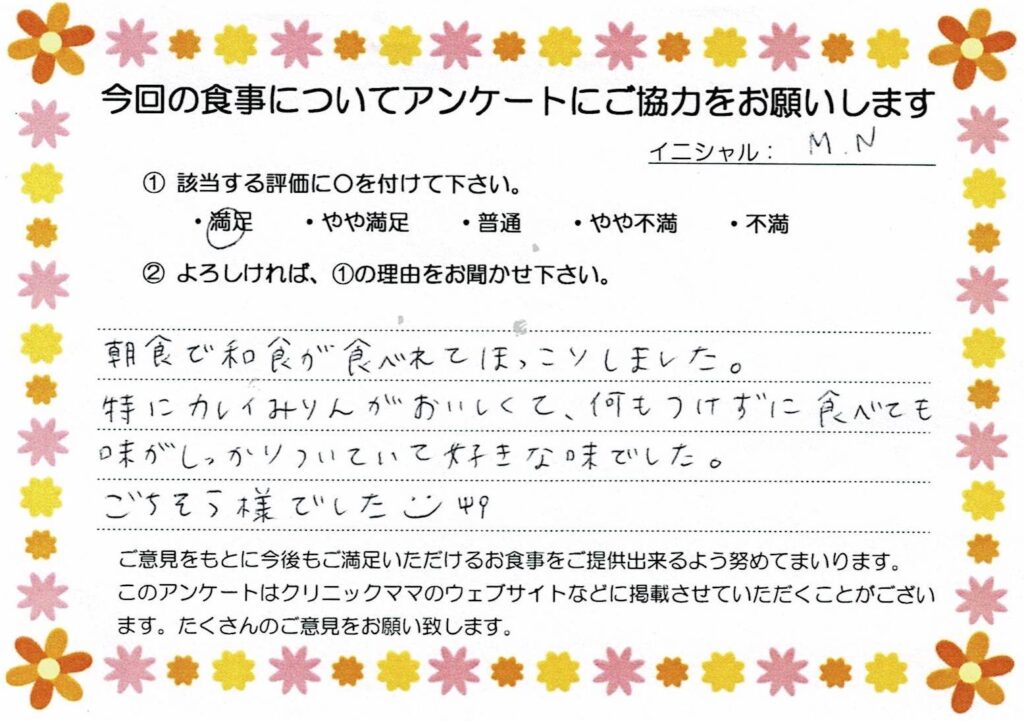 今回の食事についてアンケートにご協力をお願いします
イニシャル: M.N
① 該当する評価に○を付けて下さい。
・満足 ・やや満足 ・普通 ・やや不満 ・不満
② よろしければ、①の理由をお聞かせ下さい。
朝食で和食が食べれてほっこりしました。
特にカレイみりんがおいしくて、何もつけずに食べても
味がしっかりついていて好きな味でした。
ごちそう様でした
ご意見をもとに今後もご満足いただけるお食事をご提供出来るよう努めてまいります。
このアンケートはクリニックママのウェブサイトなどに掲載させていただくことがござい
ます。たくさんのご意見をお願い致します。